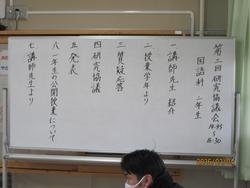 第二回研究協議会
国語科 二年生
一 講師先生 紹介
二 授業学年より
三 質疑応答
四 研究協議
五 発表
八 一年生の公開授業について
七 講師先生より